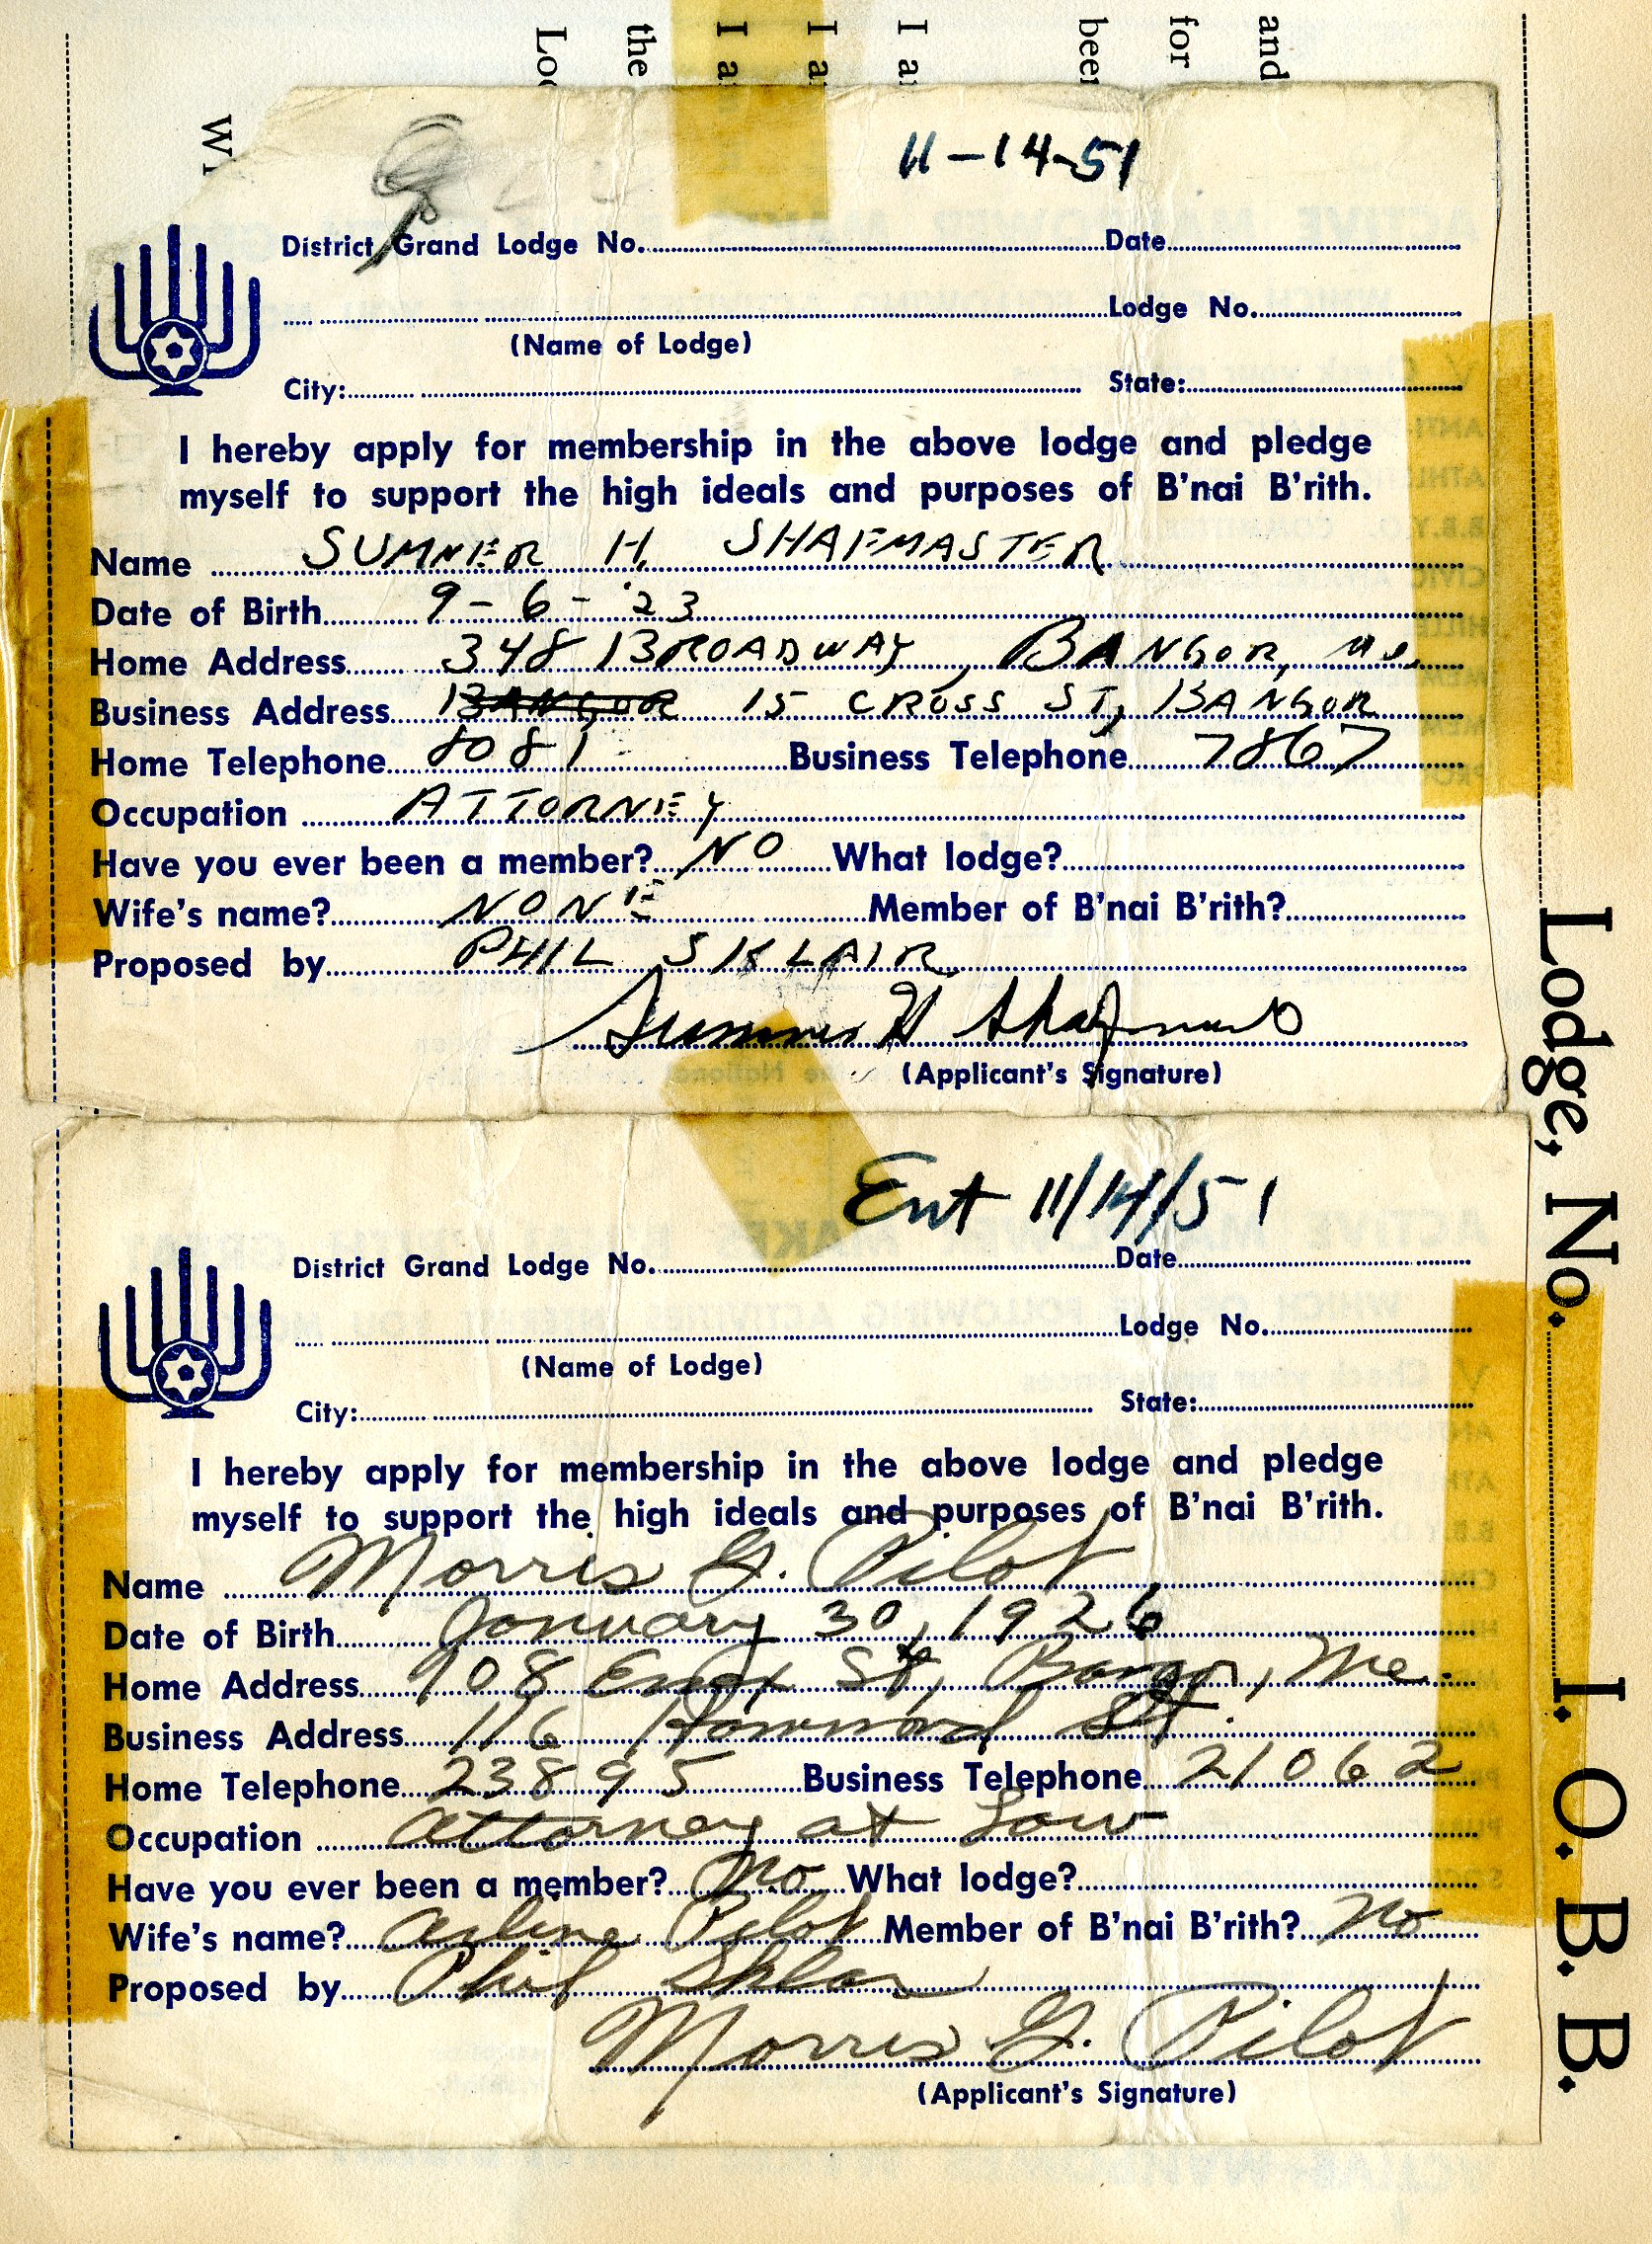 and
for
beer
I a
I a
I a
the
Loc
W
11-14-51
District Grand Lodge No. Date
Lodge No.
(Name of Lodge)
City: State:
I hereby apply for membership in the above lodge and pledge
myself to support the high ideals and purposes of B'nai B'rith.
Name SUMNER H. SHAFMASTER
Date of Birth 9-6-'23
Home Address 348 BROADWAY, BANGOR, Me.
Business Address BANGOR 15 CROSS ST, BANGOR
Home Telephone 8081 Business Telephone 7867
Occupation ATTORNEY
Have you ever been a member? NO What lodge?
Wife's name? NONE Member of B'nai B'rith?
Proposed by PHIL SKLAIR
Sumner H Shafmaster
(Applicant's Signature)
Ent 11/14/51
District Grand Lodge No. Date
Lodge No.
(Name of Lodge)
City: State:
I hereby apply for membership in the above lodge and pledge
myself to support the high ideals and purposes of B'nai B'rith.
Name Morris G. Pilot
Date of Birth January 30, 1926
Home Address 108 Essex St, Bangor, Me.
Business Address 116 Hammond St.
Home Telephone 23895 Business Telephone 21062
Occupation Attorney at Law
Have you ever been a member? No What lodge?
Wife's name? Arline Pilot Member of B'nai B'rith? No
Proposed by Phil Sklar
Morris G. Pilot
(Applicant's Signature)
Lodge, No. I. O. B. B.